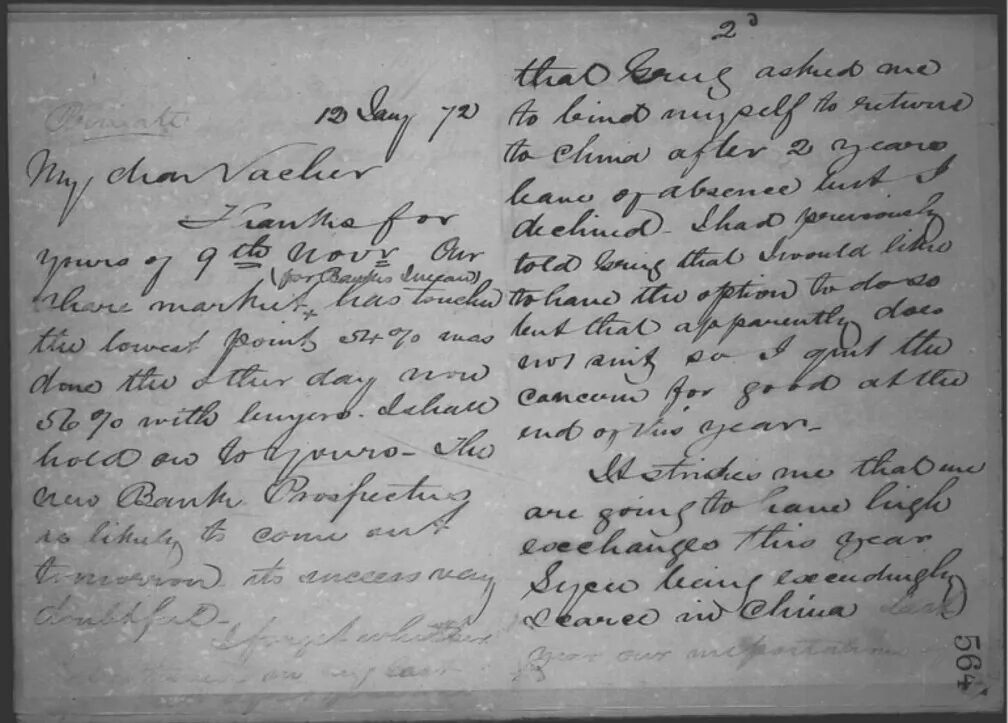 Private
12 Jany 72
My dear Vacher
Thanks for
yours of 9th Novr Our
(for Banks I mean)
share market + has touched
the lowest point 54% was
done the other day now
56% with buyers. I shall
hold on to yours - The
new Bank Prospectus
is likely to come out
tomorrow its success very
doubtful -
I forget whether
on my last
2d
that asked me
to bind myself to return
to China after 2 years
leave of absence but I
declined - I had previously
told that I would like
to have the option to do so
but that apparently does
not suit so I quit the
concern for good at the
end of this year -
It strikes me that we
are going to have high
exchanges this year
Sycee being exceedingly
scarce in China last
year our importations
564